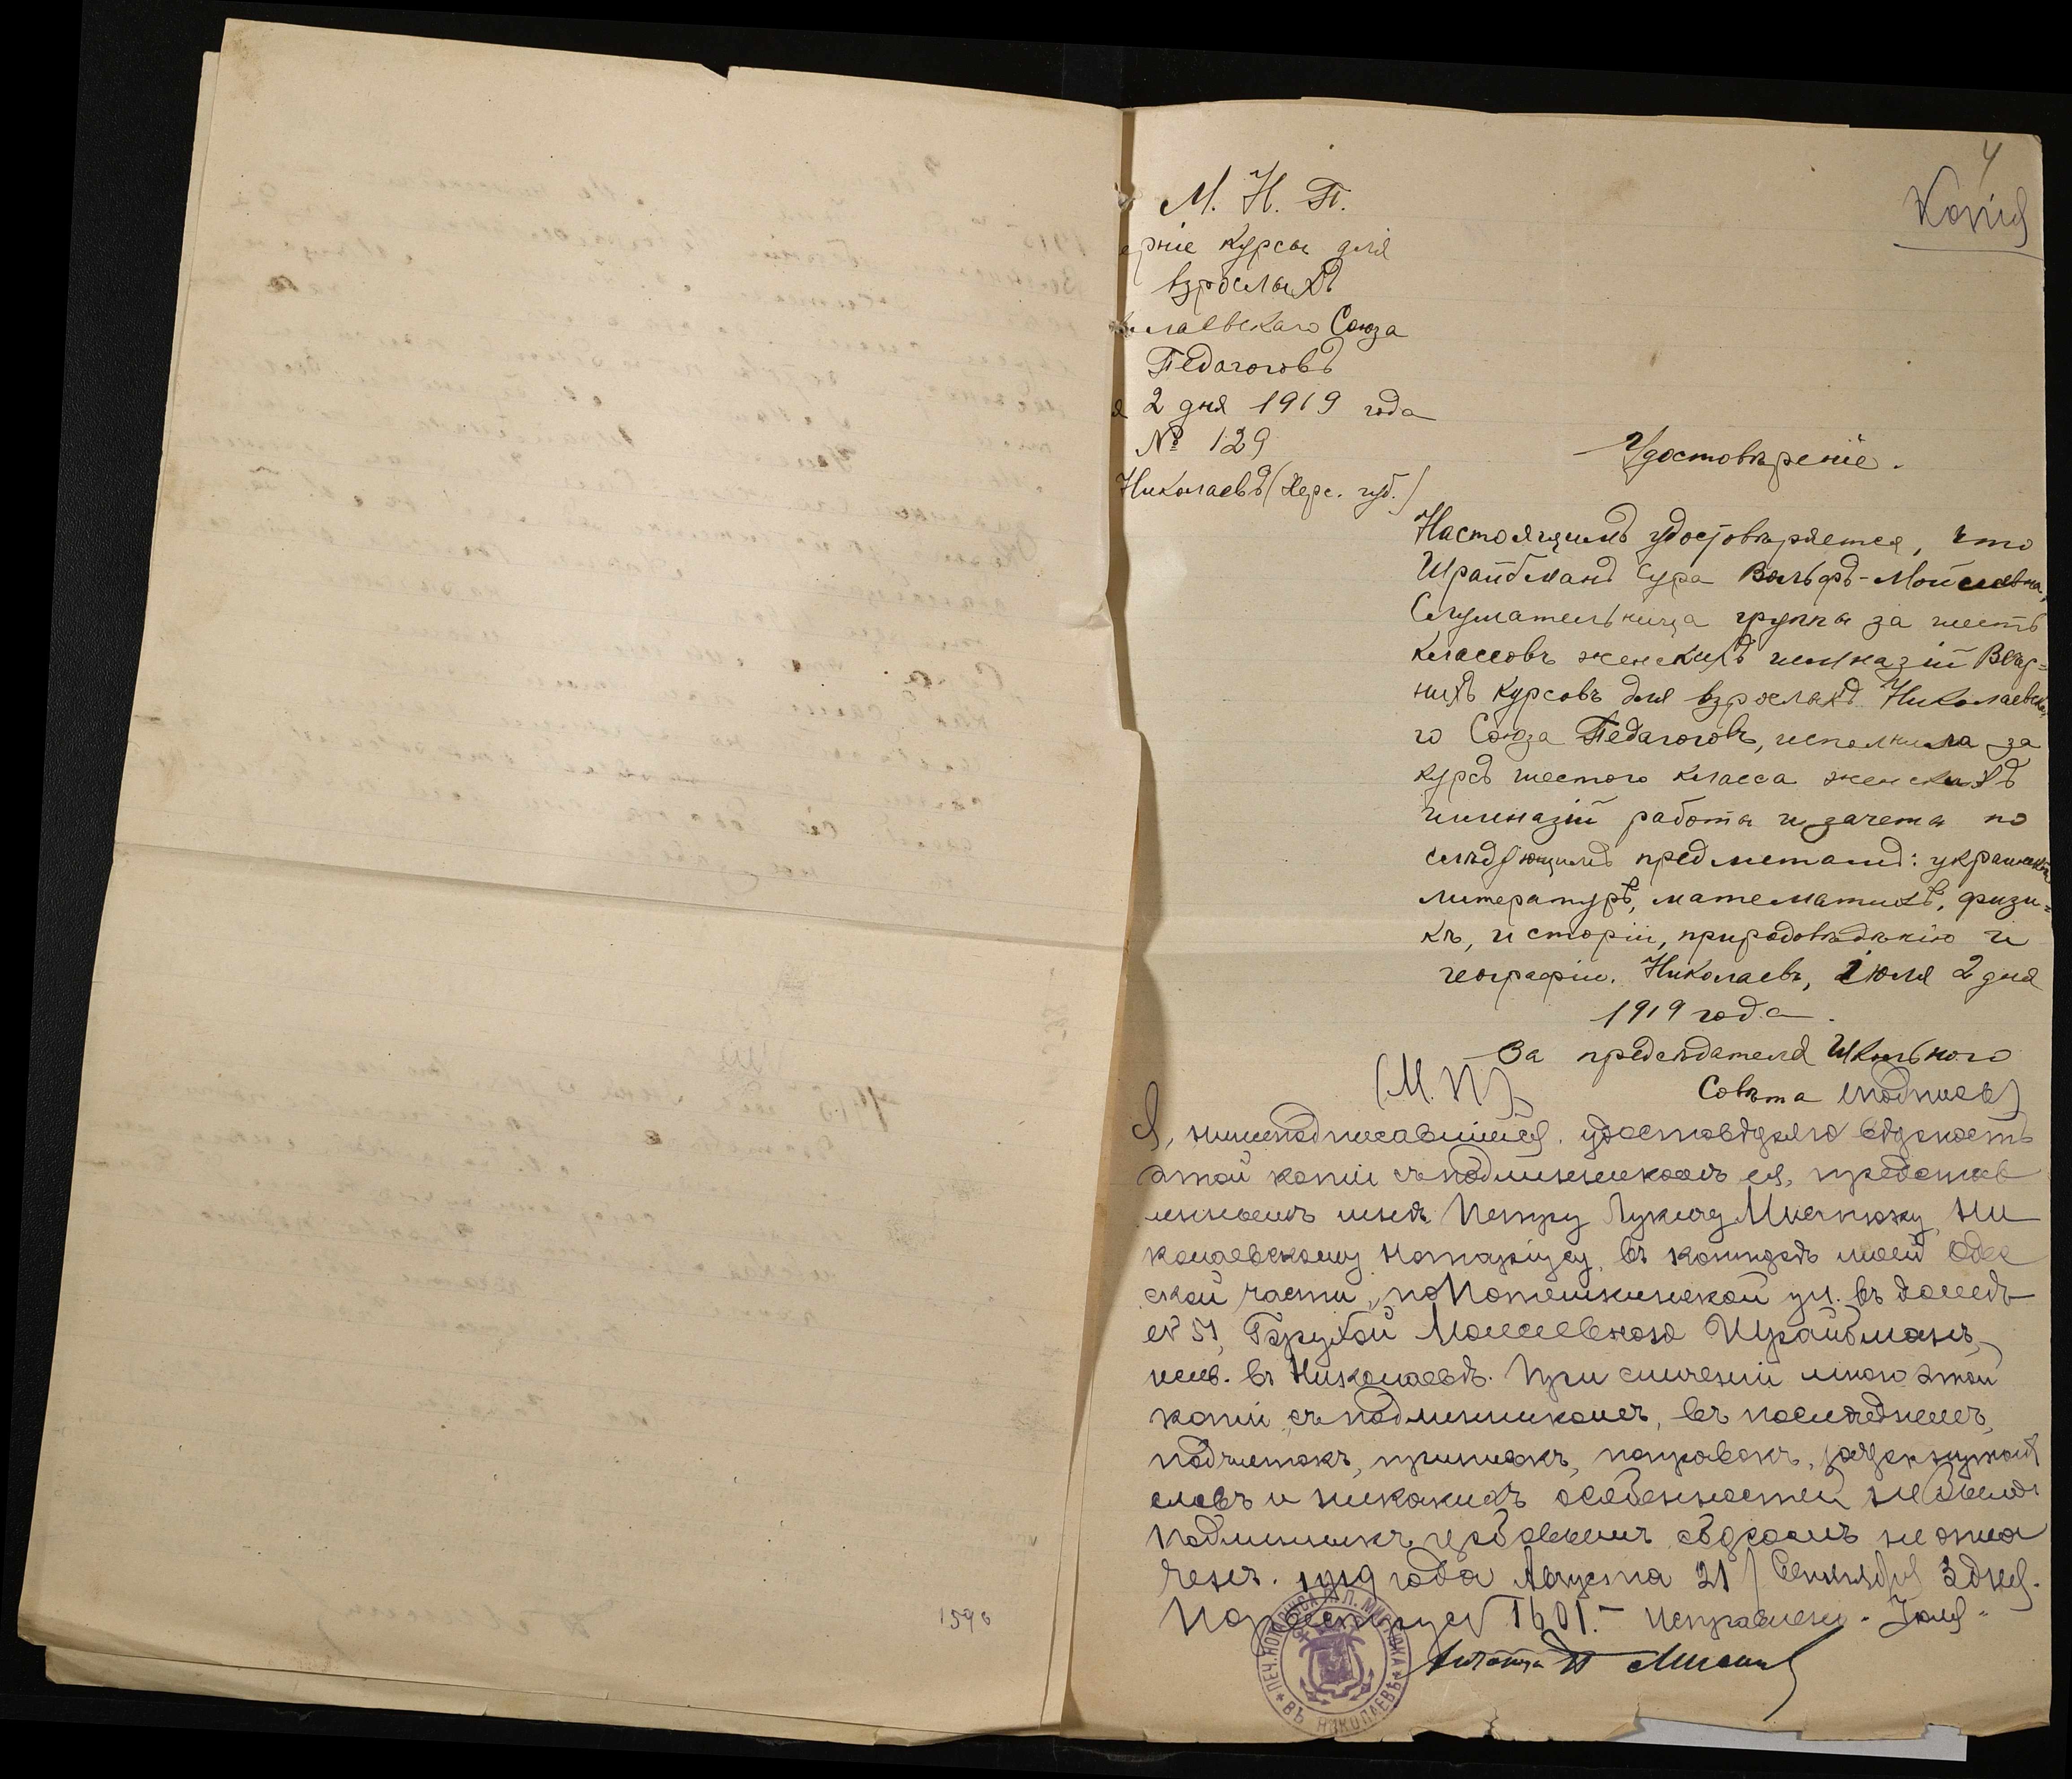 4
Копія
М. Н. П.
ерніе курсы для
взрослыхъ
лаевскаго Союза
Педагоговъ
я 2 дня 1919 года
№ 129
Николаевъ (Херс. губ.)
Удостовѣреніе.
Настоящимъ удостовѣряется, что
Шрайбманъ Сура Вольфъ-Мойсеевна,
Слушательница группы за шесть
классовъ женскихъ гимназій Вечер=
нихъ курсовъ для взрослыхъ Николаевска
го Союза Педагоговъ, исполнила за
курсъ шестого класса женскихъ
гимназій работы и зачеты по
слѣдующимъ предметамъ: украинской
литературѣ, математикѣ, физи=
кѣ, исторіи, природовѣдѣнію и
географіи. Николаевъ, Іюля 2 дня
1919 года.
За предсѣдателя Школьного
(М. П.) Совѣта (подпись)
Я, нижеподписавшійся, удостовѣряю вѣрность
этой копіи съ подлинникомъ ея, представ
леннымъ мнѣ Петру Лукичу Мистюку, Ни
колаевскому Нотаріусу, въ конторѣ моей Одес
ской части, по Потемкинской ул. въ домѣ
№ 51, Моисеевною Шрайбманъ,
жив. въ Николаевѣ. При сличеніи мною этой
копіи съ подлинникомъ, въ послѣднемъ,
подчистокъ, приписокъ, поправокъ, зачеркнутыхъ
словъ и никакихъ особенностей не было.
Подлинникъ гербовымъ сборомъ не опла
ченъ. 1919 года Августа 21/Сентября 3 дня.
По реестру № 1601.- Исправлено "Іюля"
Нотаріусъ П. Мистюкъ
ПЕЧ. НОТАРІУСА П.Л. МИСТЮКА ВЪ НИКОЛАЕВѢ
1596